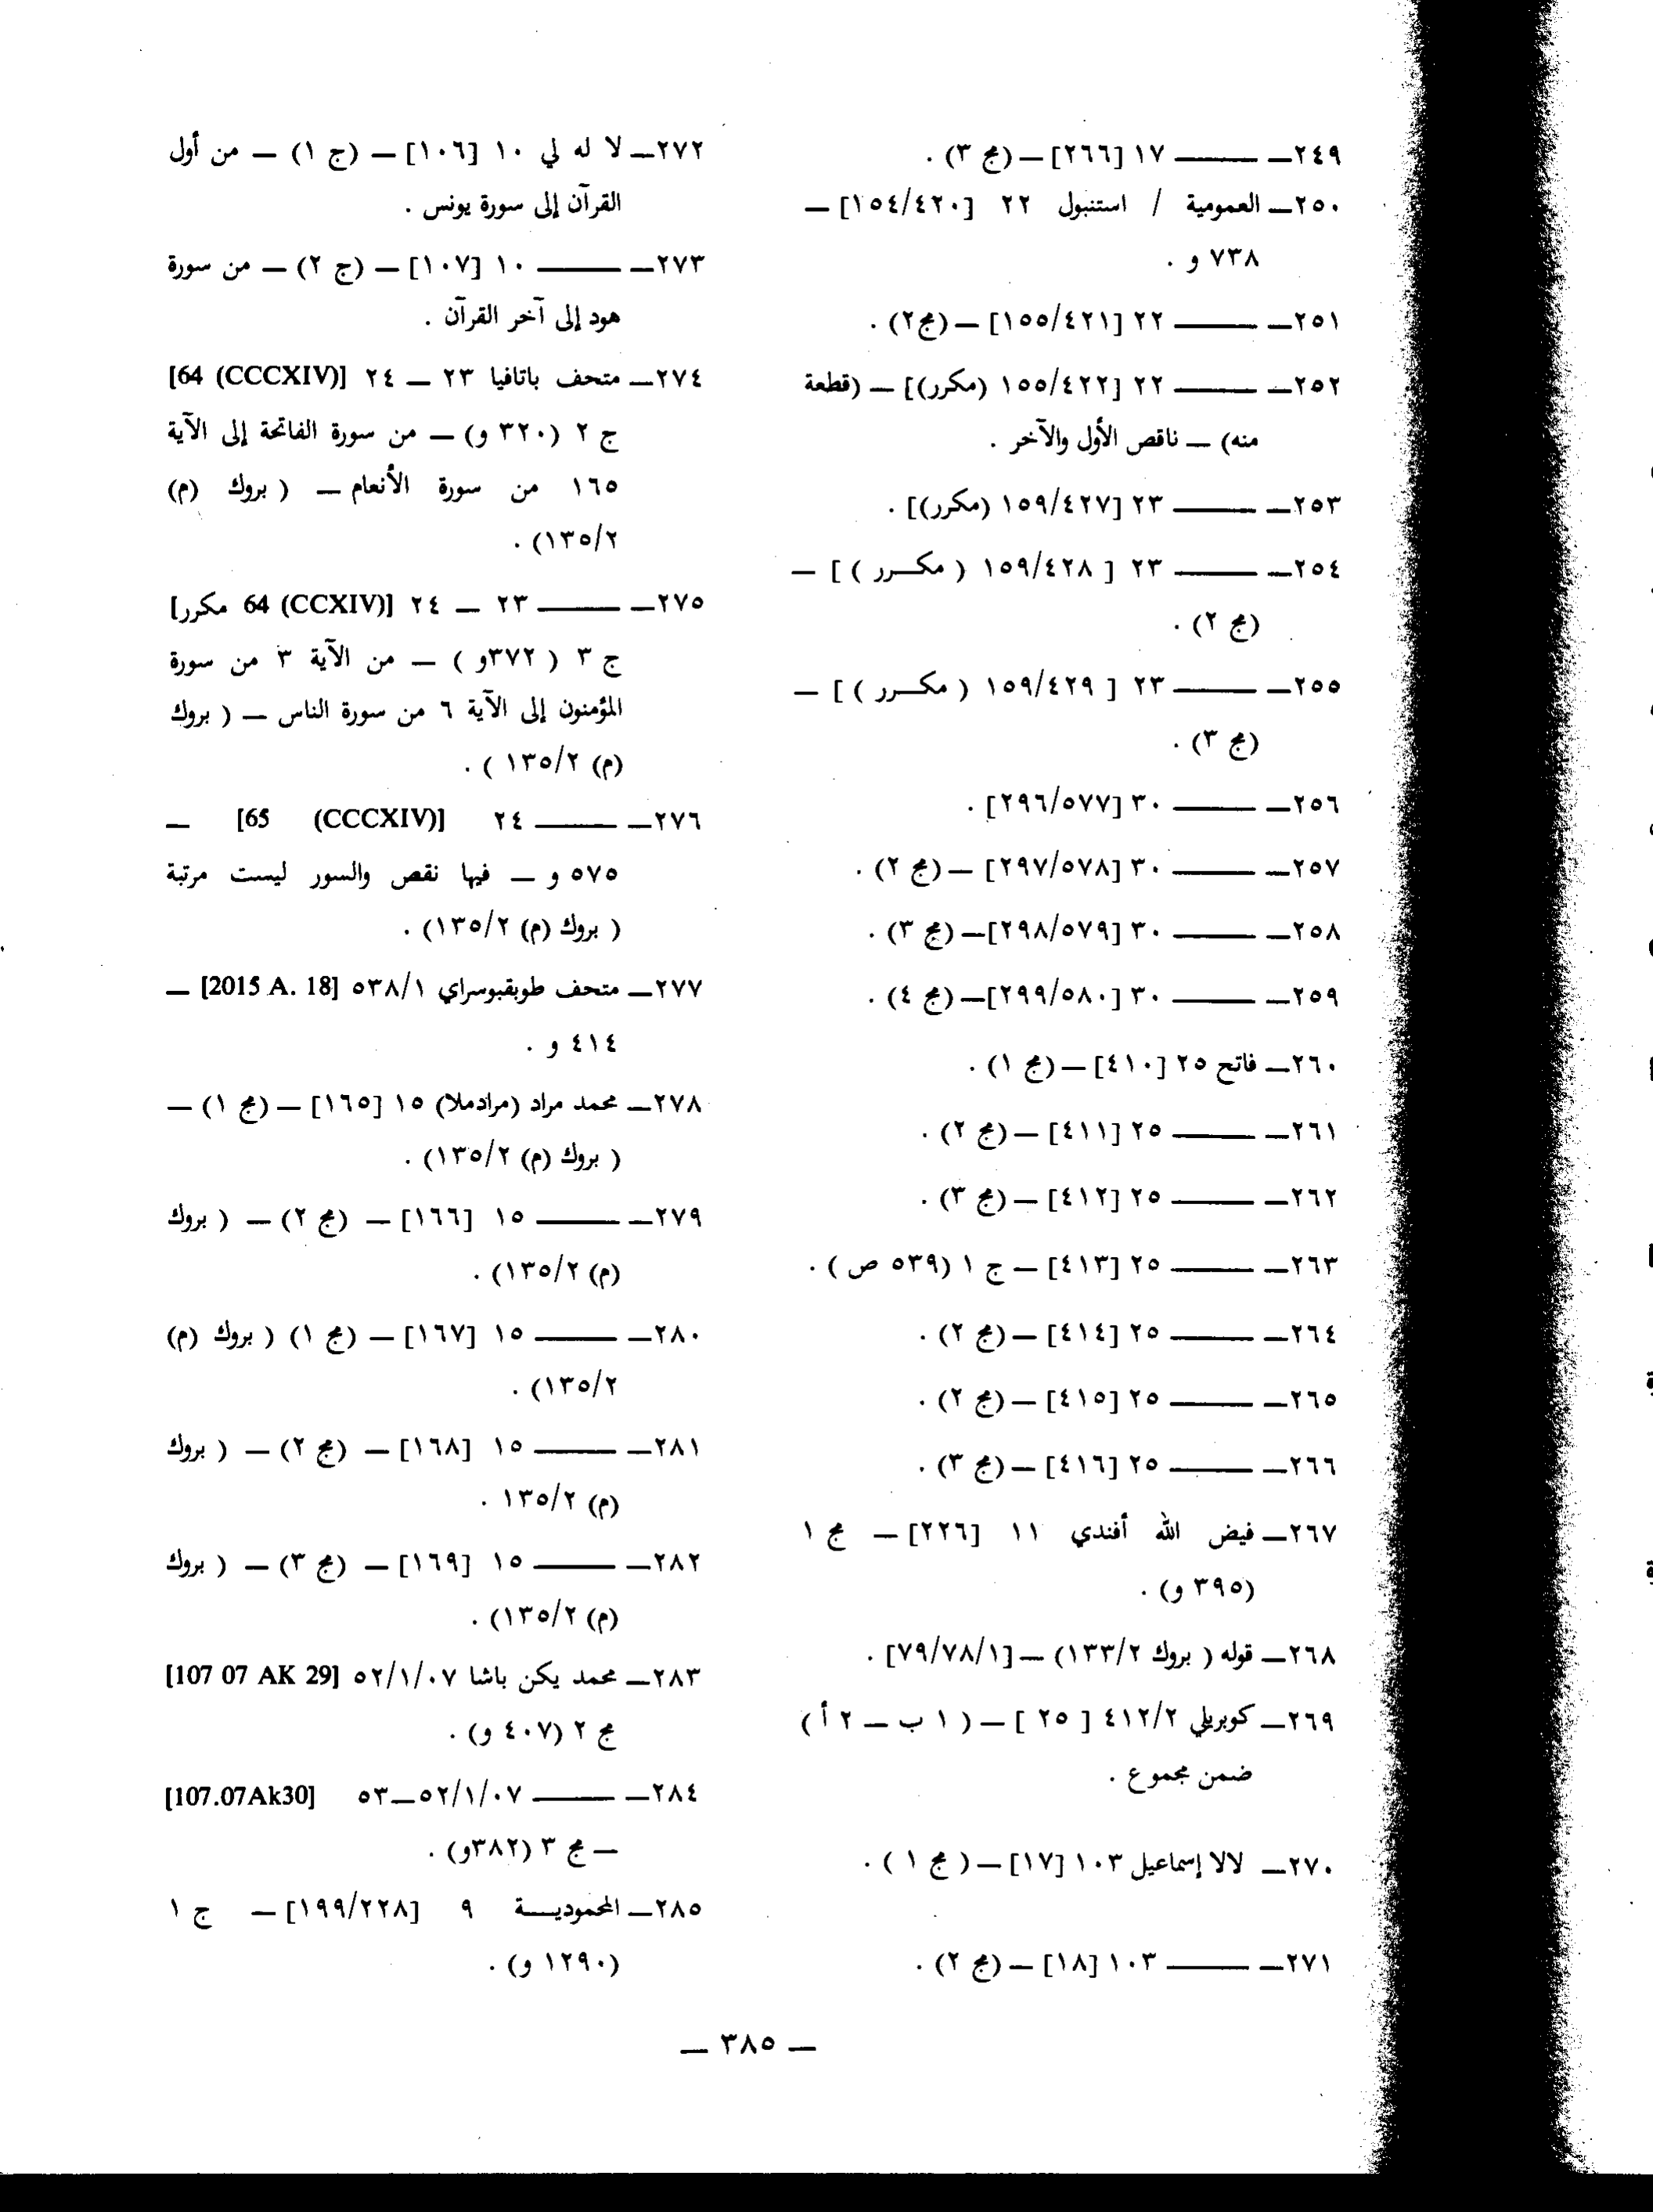 ٢٤٩ــ ــــــــ ١٧ [٢٦٦] ــ (مج ٣) .
٢٥٠ــ العمومية / استنبول ٢٢ [١٥٤/٤٢٠] ــ
٧٣٨ و .
٢٥١ــ ــــــــ ٢٢ [١٥٥/٤٢١] ــ (مج٢) .
٢٥٢ــ ــــــــ ٢٢ [١٥٥/٤٢٢ (مكرر)] ــ (قطعة
منه) ــ ناقص الأول والآخر .
٢٥٣ــ ــــــــ ٢٣ [١٥٩/٤٢٧ (مكرر)] .
٢٥٤ــ ــــــــ ٢٣ [ ١٥٩/٤٢٨ ( مكـــرر ) ] ــ
(مج ٢) .
٢٥٥ــ ــــــــ ٢٣ [ ١٥٩/٤٢٩ ( مكـــرر ) ] ــ
(مج ٣) .
٢٥٦ــ ــــــــ ٣٠ [٢٩٦/٥٧٧] .
٢٥٧ــ ــــــــ ٣٠ [٢٩٧/٥٧٨] ــ (مج ٢) .
٢٥٨ــ ــــــــ ٣٠ [٢٩٨/٥٧٩] ــ (مج ٣) .
٢٥٩ــ ــــــــ ٣٠ [٢٩٩/٥٨٠] ــ (مج ٤) .
٢٦٠ــ فاتح ٢٥ [٤١٠] ــ (مج ١) .
٢٦١ــ ــــــــ ٢٥ [٤١١] ــ (مج ٢) .
٢٦٢ــ ــــــــ ٢٥ [٤١٢] ــ (مج ٣) .
٢٦٣ــ ــــــــ ٢٥ [٤١٣] ــ ج ١ (٥٣٩ ص ) .
٢٦٤ــ ــــــــ ٢٥ [٤١٤] ــ (مج ٢) .
٢٦٥ــ ــــــــ ٢٥ [٤١٥] ــ (مج ٢) .
٢٦٦ــ ــــــــ ٢٥ [٤١٦] ــ (مج ٣) .
٢٦٧ــ فيض الله أفندي ١١ [٢٢٦] ــ مج ١
(٣٩٥ و) .
٢٦٨ــ قوله ( بروك ١٣٣/٢) ــ [٧٩/٧٨/١] .
٢٦٩ــ كوبريلي ٤١٢/٢ [ ٢٥ ] ــ ( ١ ب ــ ٢ أ )
ضمن مجموع .
٢٧٠ــ لالا إسماعيل ١٠٣ [١٧] ــ ( مج ١ ) .
٢٧١ــ ــــــــ ١٠٣ [١٨] ــ (مج ٢) .
٢٧٢ــ لا له لي ١٠ [١٠٦] ــ (ج ١) ــ من أول
القرآن إلى سورة يونس .
٢٧٣ــ ــــــــ ١٠ [١٠٧] ــ (ج ٢) ــ من سورة
هود إلى آخر القرآن .
٢٧٤ــ متحف باتافيا ٢٣ ــ ٢٤ [64 (CCCXIV)]
ج ٢ (٣٢٠ و) ــ من سورة الفاتحة إلى الآية
١٦٥ من سورة الأنعام ــ ( بروك (م)
١٣٥/٢) .
٢٧٥ــ ــــــــ ٢٣ ــ ٢٤ [64 (CCXIV) مكرر]
ج ٣ ( ٣٧٢و ) ــ من الآية ٣ من سورة
المؤمنون إلى الآية ٦ من سورة الناس ــ ( بروك
(م) ١٣٥/٢ ) .
٢٧٦ــ ــــــــ ٢٤ [65 (CCCXIV)] ــ
٥٧٥ و ــ فيها نقص والسور ليست مرتبة
( بروك (م) ١٣٥/٢) .
٢٧٧ــ متحف طوبقبوسراي ٥٣٨/١ [2015 A. 18] ــ
٤١٤ و .
٢٧٨ــ محمد مراد (مرادملا) ١٥ [١٦٥] ــ (مج ١) ــ
( بروك (م) ١٣٥/٢) .
٢٧٩ــ ــــــــ ١٥ [١٦٦] ــ (مج ٢) ــ ( بروك
(م) ١٣٥/٢) .
٢٨٠ــ ــــــــ ١٥ [١٦٧] ــ (مج ١) ( بروك (م)
١٣٥/٢) .
٢٨١ــ ــــــــ ١٥ [١٦٨] ــ (مج ٢) ــ ( بروك
(م) ١٣٥/٢ .
٢٨٢ــ ــــــــ ١٥ [١٦٩] ــ (مج ٣) ــ ( بروك
(م) ١٣٥/٢) .
٢٨٣ــ محمد يكن باشا ٥٢/١/٠٧ [107 07 AK 29]
مج ٢ (٤٠٧ و) .
٢٨٤ــ ــــــــ ٥٢/١/٠٧ــ٥٣ [107.07Ak30]
ــ مج ٣ (٣٨٢و) .
٢٨٥ــ المحموديـــة ٩ [١٩٩/٢٢٨] ــ ج ١
(١٢٩٠ و) .
ــ ٣٨٥ ــ